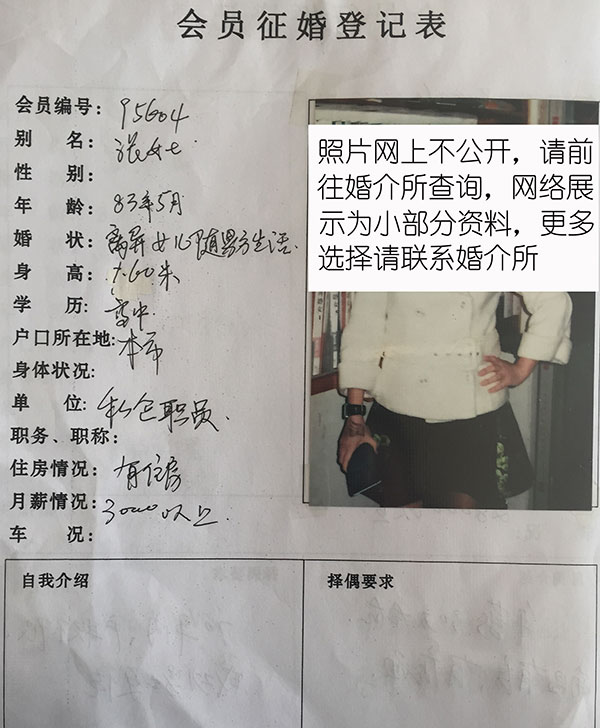 会员征婚登记表
会员编号: 95604
别 名: 张女士
性 别:
年 龄: 83年5月
婚 状: 离异女儿随男方生活.
身 高: 1.60米
学 历: 高中
户口所在地: 本市
身体状况:
单 位: 私企职员.
职务、职称:
住房情况: 有住房
月薪情况: 3000以上.
车 况:
照片网上不公开，请前
往婚介所查询，网络展
示为小部分资料，更多
选择请联系婚介所
自我介绍
择偶要求